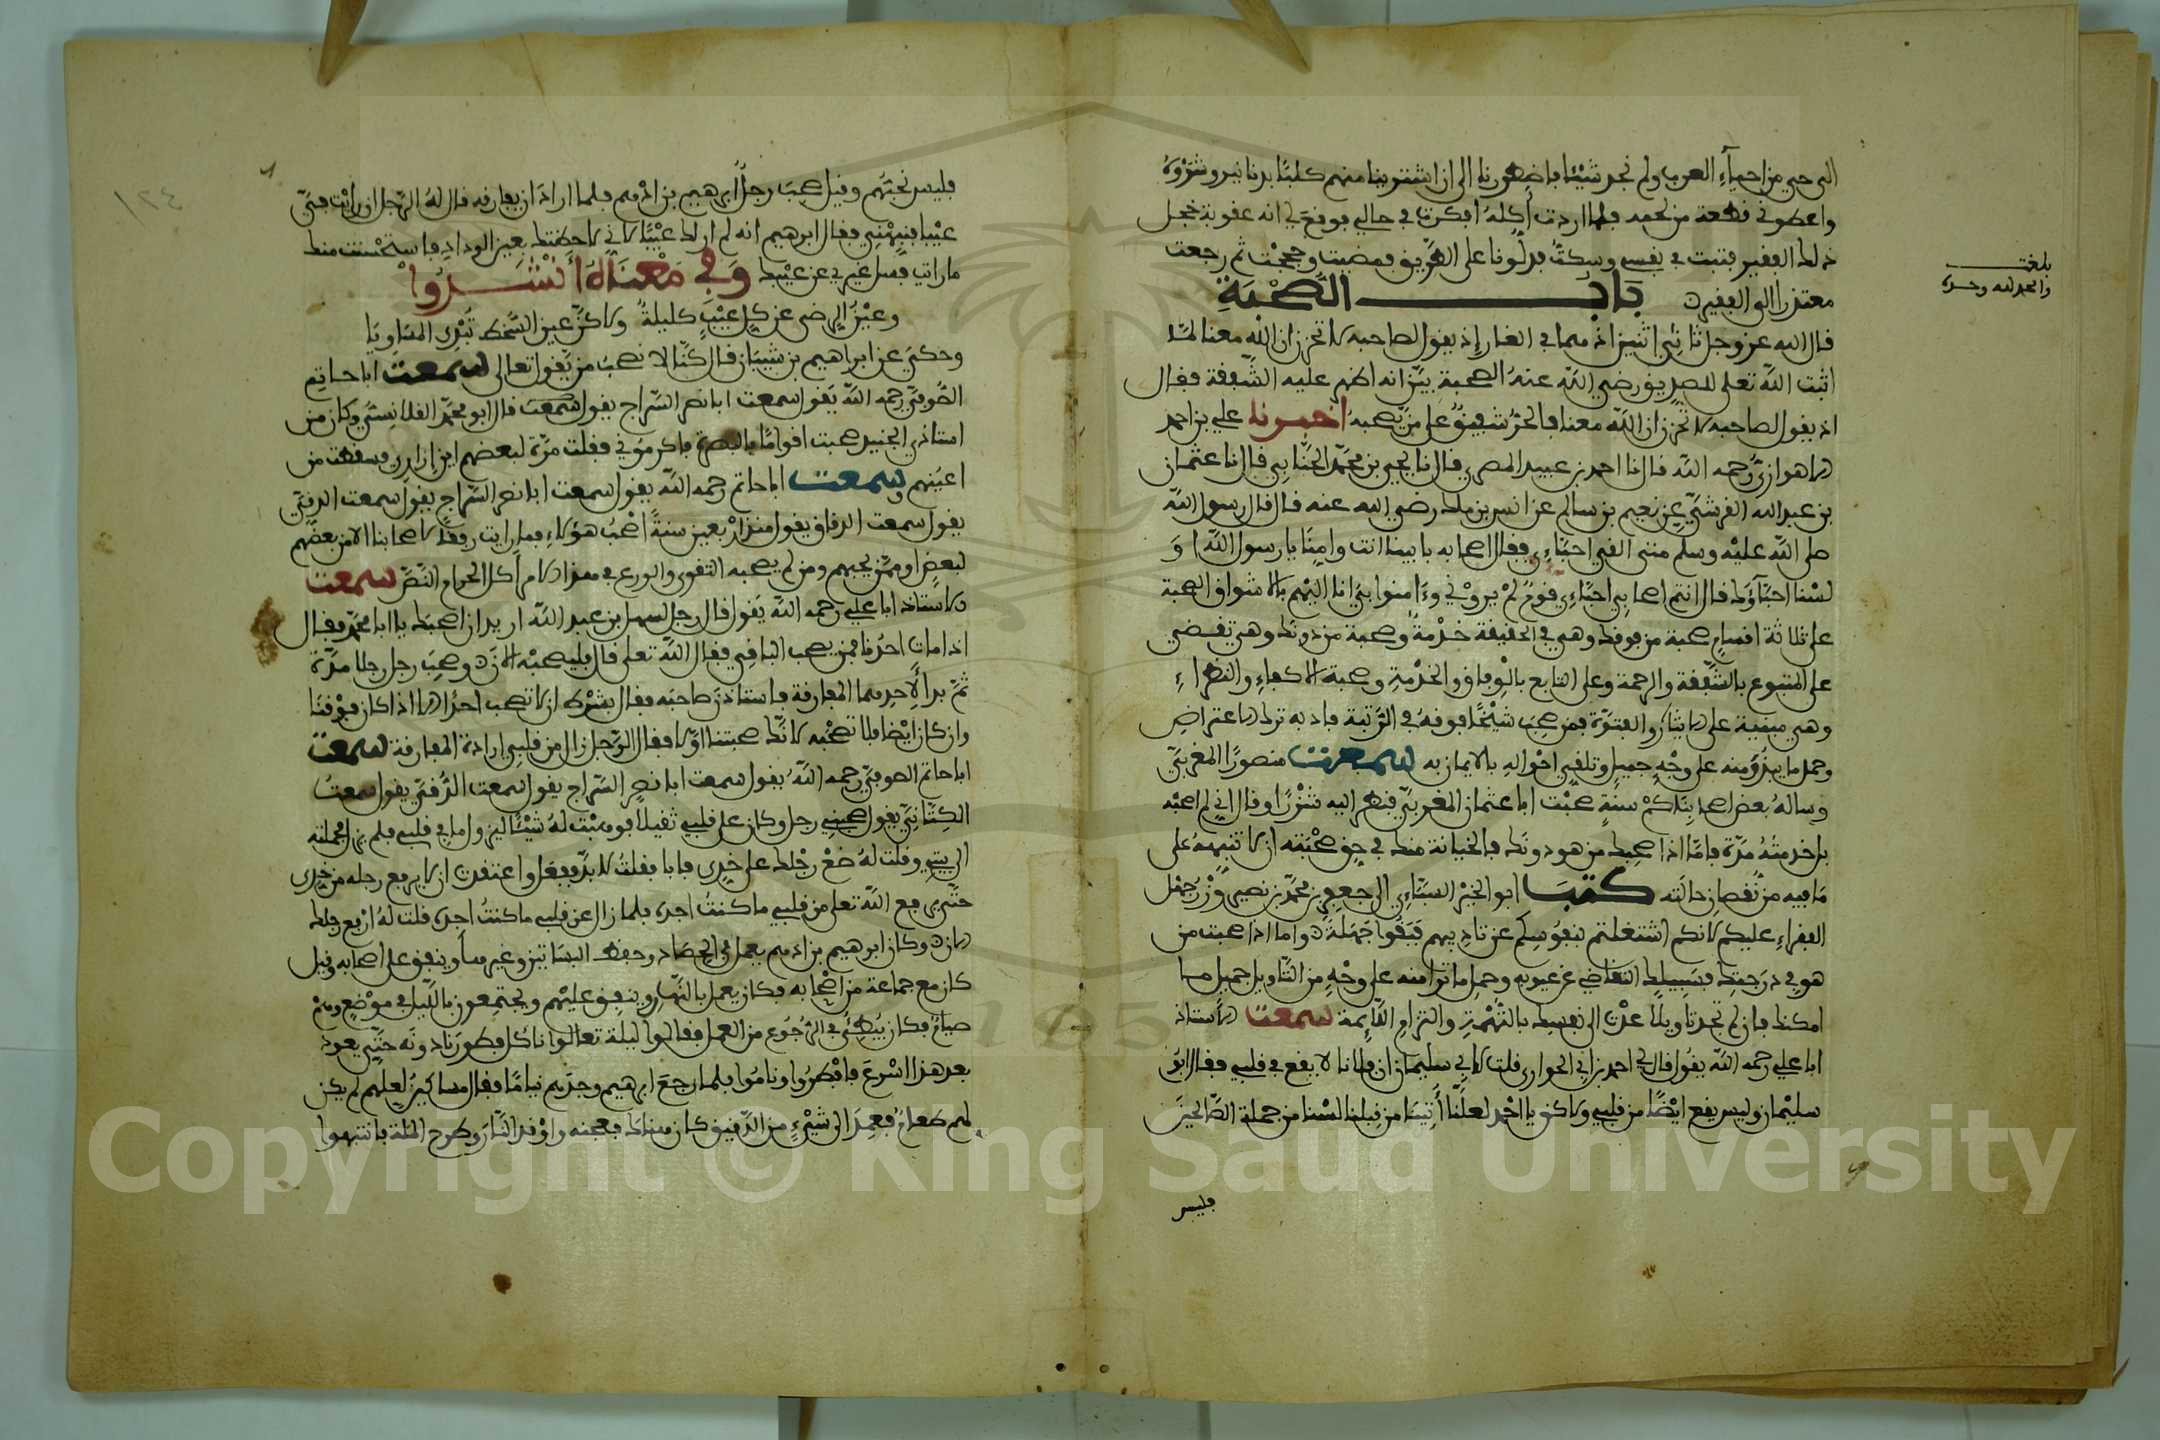 الى حي من احياء العرب ولم نجد شيئا فاضطررنا الى ان اشترينا منهم كلبا بدنانير وشووه
واعطوني قطعة من لحمه فلما اردت اكله افكرت في حالي فوقع لي انه عقوبة خجل
ذلك الفقير فتبت في نفسي وسكت فدلونا على الطريق فمضيت وحججت ثم رجعت
معتذرا الى الفقير باب الصحبة
بلغت
والحمد لله وحده
قال الله عز وجل ثاني اثنين اذ هما في الغار إذ يقول لصاحبه لا تحزن ان الله معنا لما
اثبت الله تعلى للصديق رضي الله عنه الصحبة بين انه اظهر عليه الشفقة فقال
اذ يقول لصاحبه لا تحزن ان الله معنا فالحر شفيق على من يصحبه اخبرنا علي بن احمد
الاهوازي رحمه الله قال نا احمد بن عبيد البصري قال نا يحيى بن محمد الجياني قال نا عثمان
بن عبد الله القرشي عن نعيم بن سالم عن انس بن ملك رضي الله عنه قال قال رسول الله
صلى الله عليه وسلم متى القي احبائي فقال اصحابه بابينا انت وامنا يا رسول الله او
لسنا احباؤك قال انتم اصحابي احبائي قوم لم يروني وءامنوا بي انا اليهم بالاشواق الصحبة
على ثلاثة اقسام صحبة من فوقك وهي في الحقيقة خدمة وصحبة من دونك وهي تقضي
على المتبوع بالشفقة والرحمة وعلى التابع بالوفاق والخدمة وصحبة الاكفاء والنظراء
وهي مبنية على الايثار والفتوة فمن صحب شيخا فوقه في الرتبة فادبه ترك الاعتراض
وحمل ما يبدو منه على وجه جميل وتلقي احواله بالايمان به سمعت منصورا المغربي
وساله بعض اصحابنا كم سنة صحبت ابا عثمان المغربي فنظر اليه شزرا وقال اني لم اصحبه
بل خدمته مدة فاما اذا صحبك من هو دونك فالخيانة منك في حق صحبته ان لا تنبهه على
ما فيه من نقصان حالته كتب ابو الخير التيناتي الى جعفر بن محمد بن نصير وزر جهل
الفقراء عليكم لانكم اشتغلتم بنفوسكم عن تاديبهم فبقوا جهلة واما اذا صحبت من
هو في درجتك فسبيلك التعامي عن عيوبه وحمل ما ترا منه على وجه من التاويل جميل ما
امكنك فان لم تجد تاويلا عدت الى نفسك بالتهمة والتزام اللايمة سمعت الاستاذ
ابا علي رحمه الله يقول قال احمد بن ابي الحواري قلت لابي سليمان ان فلانا لا يقع في قلبي فقال ابو
سليمان وليس يقع ايضا من قلبي ولاكن يا احمد لعلنا أتينا من قبلنا لسنا من جملة الصالحين
فليس
١٢٤
فليس نحبهم وقيل صحب رجل ابرهيم بن ادهم فلما اراد ان يفارقه قال له الرجل ان رايت في
عيبا فنبهني فقال ابرهيم انه لم ار لك عيبا لاني لاحظتك بعين الوداد فاستحسنت منك
ما رايت فسل غيري عن عيبك وفي معناه انشدوا
وعين الرضى عن كل عيب كليلة ولاكن عين السخط تبدي المساويا
وحكي عن ابراهيم بن شيبان قال كنا لا نصحب من يقول نعالي سمعت ابا حاتم
الصوفي رحمه الله يقول سمعت ابا نصر السراج يقول سمعت قال ابو محمد القلانسي وكان من
استاذي الجنيد صحبت اقواما بالبصرة فاكرموني فقلت مرة لبعضهم اين ازاري فسقطت من
اعينهم وسمعت ابا حاتم رحمه الله يقول سمعت ابا نصر السراج يقول سمعت الدقي
يقول سمعت الزقاق يقول منذ اربعين سنة اصحب هؤلاء فما رايت رفقا لاصحابنا الا من بعضهم
لبعض او ممن يحبهم ومن لم يصحبه التقوى والورع في هذا الامر أكل الحرام النص سمعت
الاستاذ ابا علي رحمه الله يقول قال رجل لسهل بن عبد الله اريد ان اصحبك يا ابا محمد فقال
اذا مات احدنا فمن يصحب الباقي فقال الله تعلى قال فليصحبه الان وصحب رجل رجلا مدة
ثم بدا لاحدهما المفارقة فاستاذن صاحبه فقال بشرط ان لا تصحب احدا الا اذا كان فوقنا
وان كان ايضا فلا تصحبه لانك صحبتنا اولا فقال الرجل زال من قلبي ارادة المفارقة سمعت
ابا حاتم الصوفي رحمه الله يقول سمعت ابا نصر السراج يقول سمعت الدقي يقول سمعت
الكتاني يقول صحبني رجل وكان على قلبي ثقيلا فوهبت له شيئا ليزول ما في قلبي فلم يزل فحملته
الى بيتي وقلت له ضع رجلك على خدي فابا فقلت لا بد ففعل واعتقدت ان لا يرفع رجله من خدي
حتى يرفع الله تعلى من قلبي ما كنت اجده فلما زال عن قلبي ما كنت اجده قلت له ارفع رجلك
الان وكان ابرهيم بن ادهم يعمل في الحصاد وحفظ البساتين وغيرها وينفق على اصحابه وقيل
كان مع جماعة من اصحابه فكان يعمل بالنهار وينفق عليهم ويجتمعون بالليل في موضع وهم
صيام فكان يبطئ في الرجوع من العمل فقالوا ليلة تعالوا ناكل فطورنا دونه حتى يعود
بعد هذا اسرع فافطروا وناموا فلما رجع ابرهيم وجدهم نياما فقال مساكين لعلهم لم يكن
لهم طعام فعمد الى شيء من الدقيق كان هناك فعجنه واوقد النار وطرح الملة فانتبهوا
Copyright © King Saud University